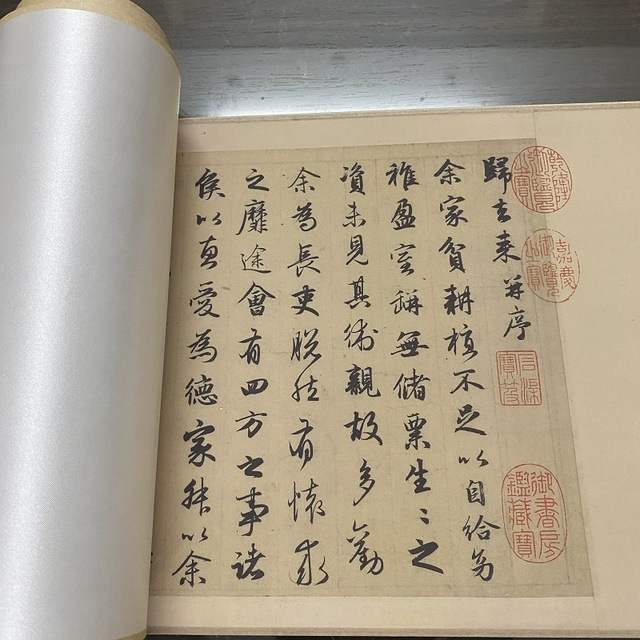 歸去來并序
余家貧耕植不足以自給幼
稚盈室缾無儲粟生〻之
資未見其術親故多勸
余為長吏脫然有懷求
之靡途會有四方之事諸
侯以惠愛為德家叔以余
乾隆
御覽
之寶
嘉慶
御覽
之寶
石渠
寶笈
御書房
鑑藏寶